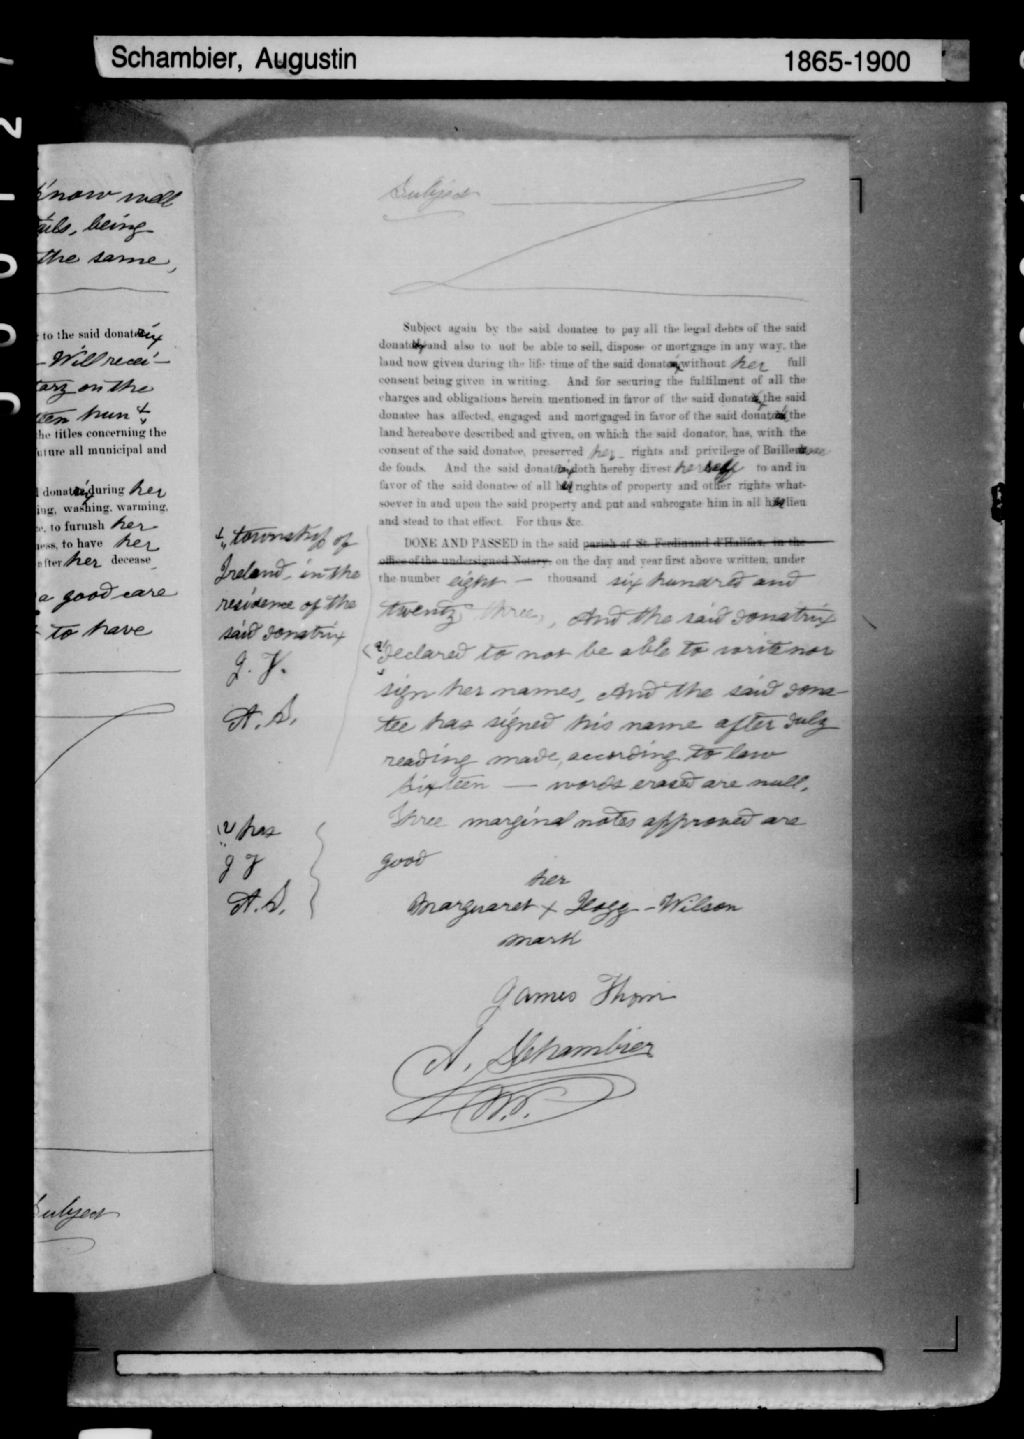 Schambier, Augustin
1865-1900
know well
being
the same,
to the said donatrix
Will recei-
on the
hun
the titles concerning the
uture all municipal and
donatrix during her
ing, washing, warming,
to furnish her
ness, to have her
after her decease
a good care
to have
Subject
Subject
Subject again by the said donatee to pay all the legal debts of the said
donatrix and also to not be able to sell, dispose or mortgage in any way, the
land now given during the life time of the said donatrix without her full
consent being given in writing. And for securing the fulfilment of all the
charges and obligations herein mentioned in favor of the said donatrix the said
donatee has affected, engaged and mortgaged in favor of the said donatrix the
land hereabove described and given, on which the said donator, has, with the
consent of the said donatee, preserved her rights and privilege of Bailleresse
de fonds. And the said donatrix doth hereby divest herself to and in
favor of the said donatee of all her rights of property and other rights what-
soever in and upon the said property and put and subrogate him in all her lieu
and stead to that effect. For thus &c.
DONE AND PASSED in the said parish of St. Ferdinand d'Halifax, in the
office of the undersigned Notary, on the day and year first above written, under
the number eight – thousand six hundred and
twenty three, And the said donatrix
declared to not be able to write nor
sign her names, And the said dona
tee has signed his name after duly
reading made, according to law
Sixteen — words erased are null,
Three marginal notes approved are
good
township of
Ireland, in the
residence of the
said donatrix
J. T.
A. S.
has
J T
A. S.
her
Marguaret x Hogg - Wilson
mark
James Thom
A. Schambier
N.P.